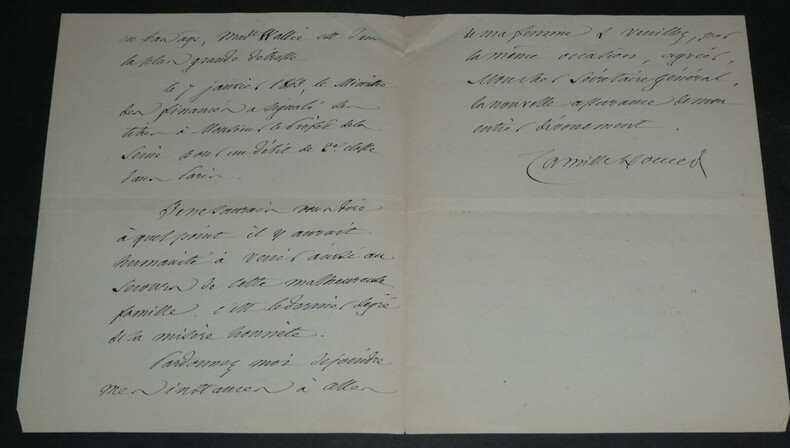 en bas âge, Made Vallée est dans
la plus grande détresse
le 7 janvier 1863, le Ministre
des finances a signalé ses
titres à Monsieur le Préfet de la
Seine pour un débit de 2e classe
dans Paris.
Je ne saurais vous dire
à quel point il y aurait
humanité à venir ainsi au
secours de cette malheureuse
famille. c'est le dernier degré
de la misère honnête.
Pardonnez moi de joindre
mes instances à celles
de ma femme & veuillez, par
la même occasion, agréer,
Mon cher Secrétaire général,
la nouvelle assurance de mon
entier dévouement.
Camille Doucet